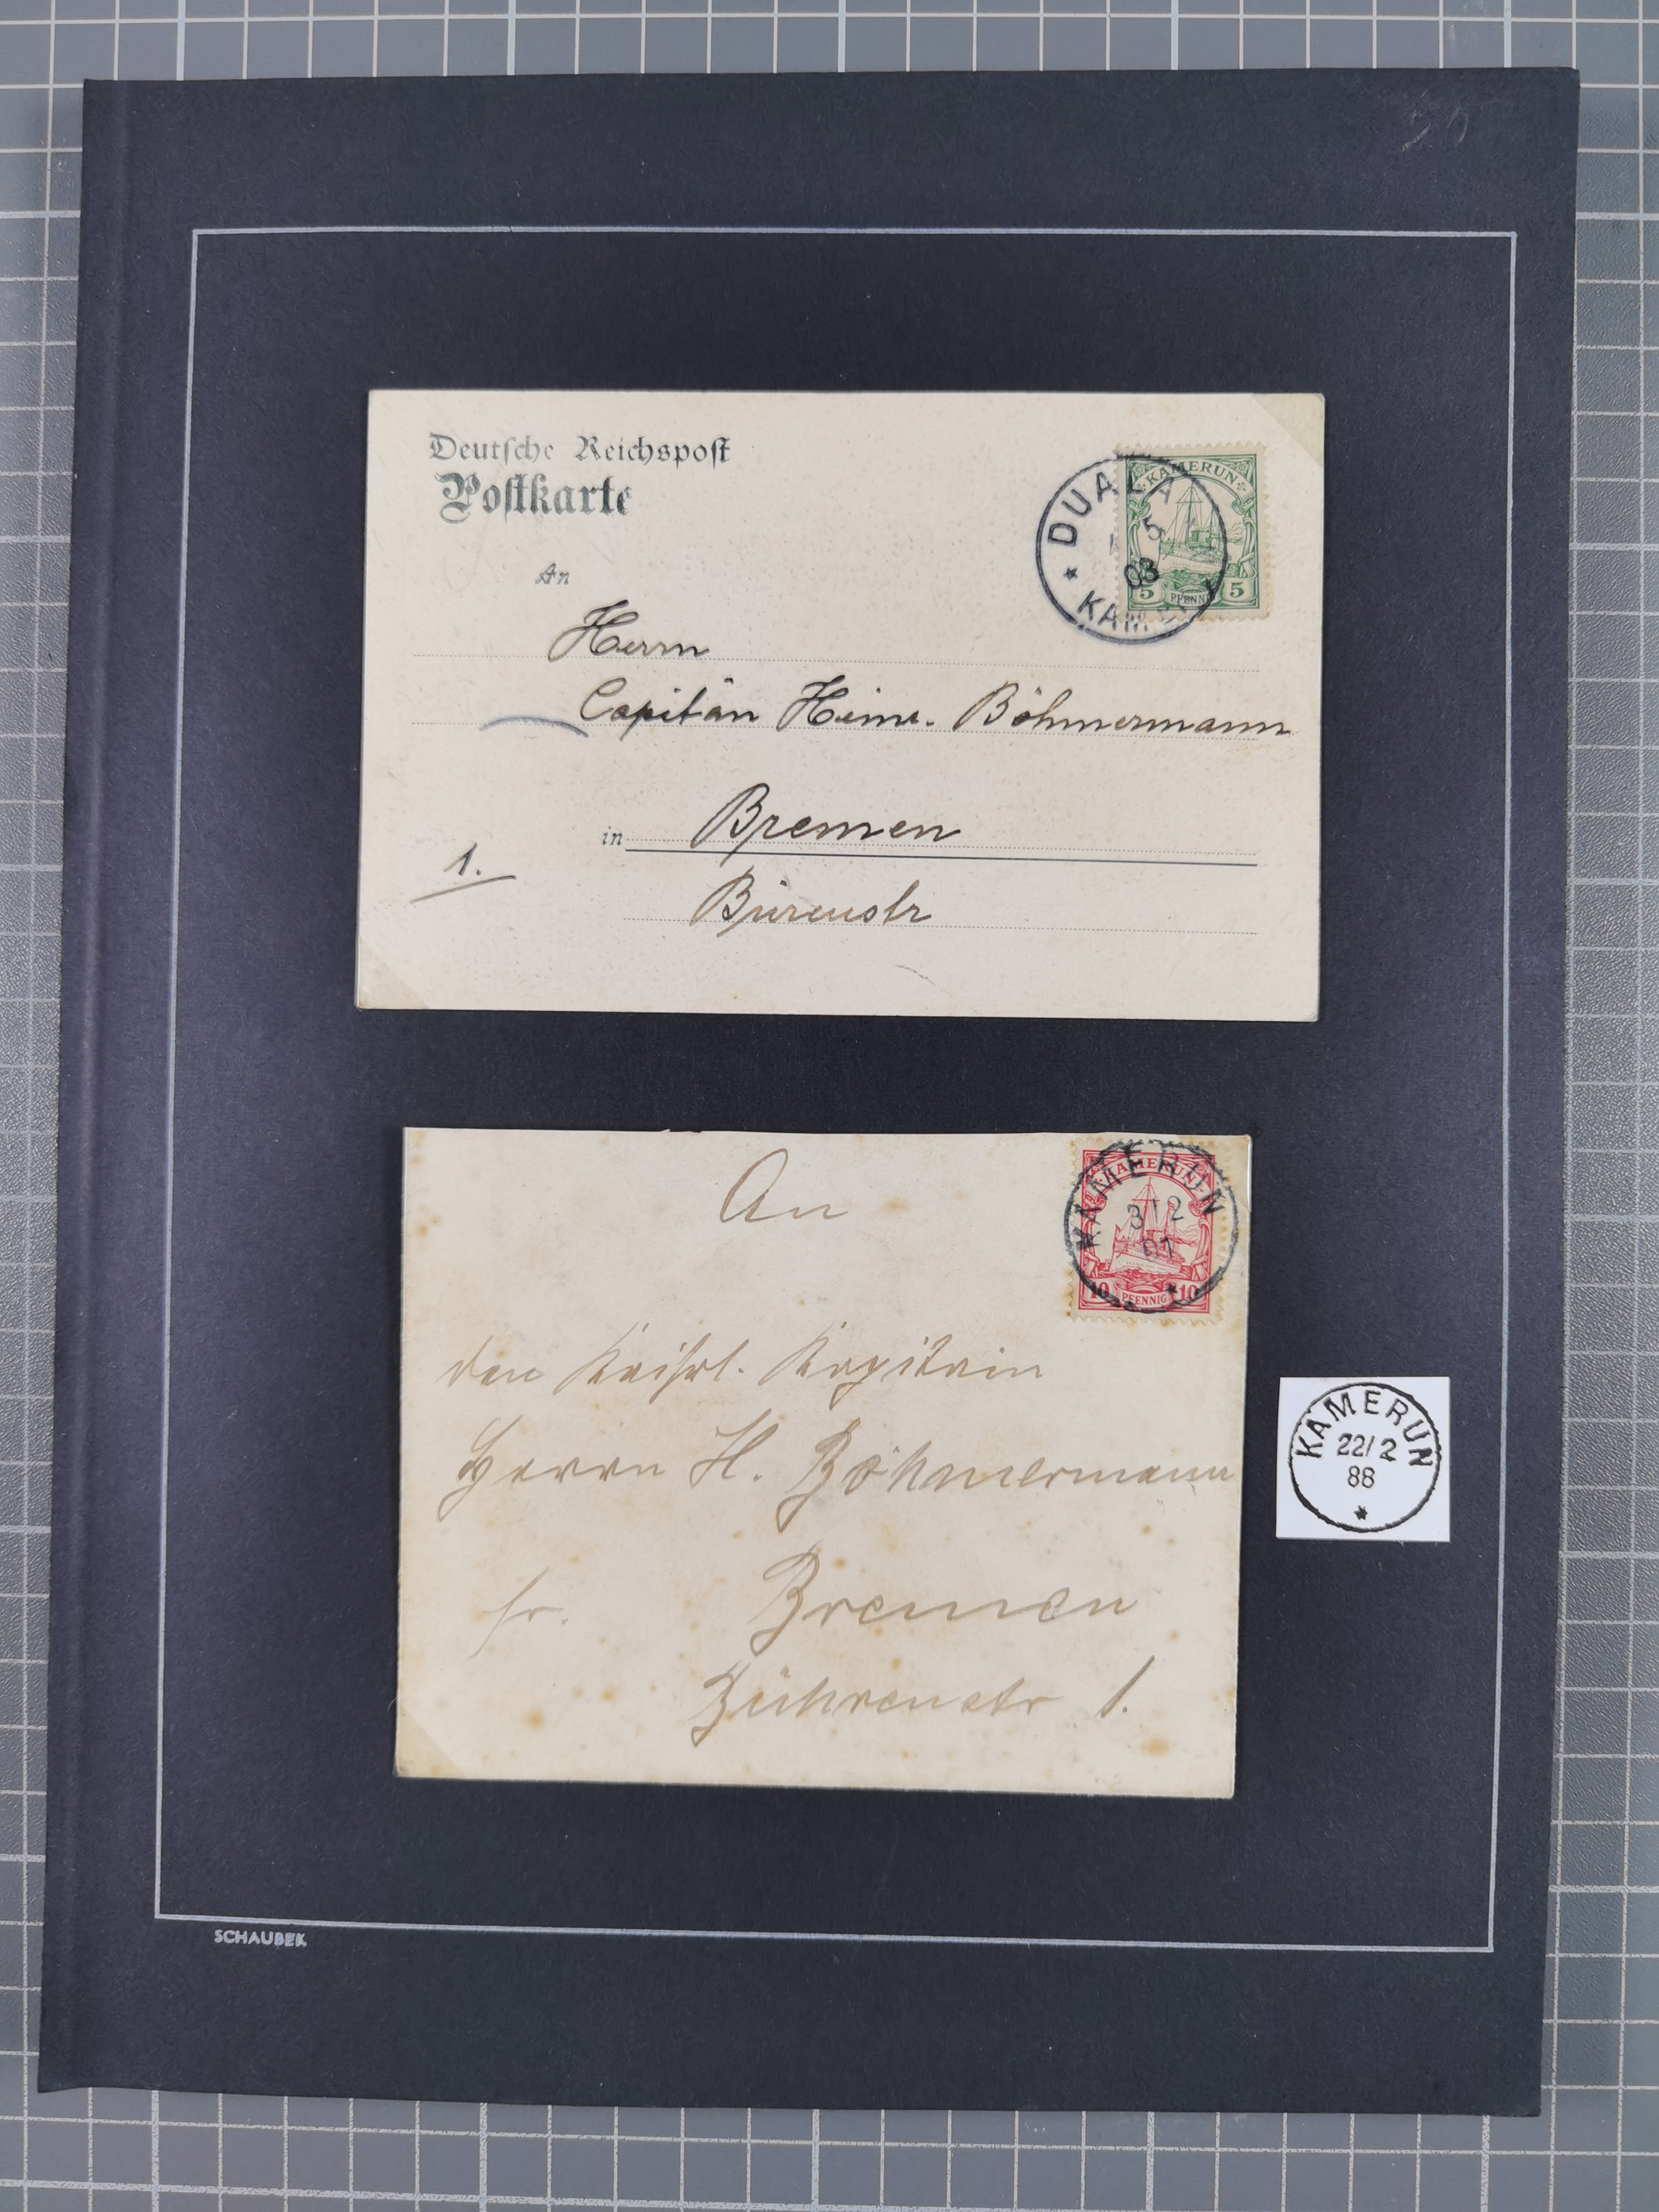 50
Deutsche Reichspost
Postkarte
DUALA
5
03
KAM
KAMERUN
5 PFENNIG 5
An
Herrn
Capitän Heinr. Böhmermann
in Bremen
1.
Bürenstr
An
KAMERUN
3 12
01
KAMERUN
10 PFENNIG 10
den Kaiserl. Kapitain
Herrn H. Böhmermann
fr. Bremen
Bührenstr 1.
KAMERUN
22/2
88
SCHAUBEK